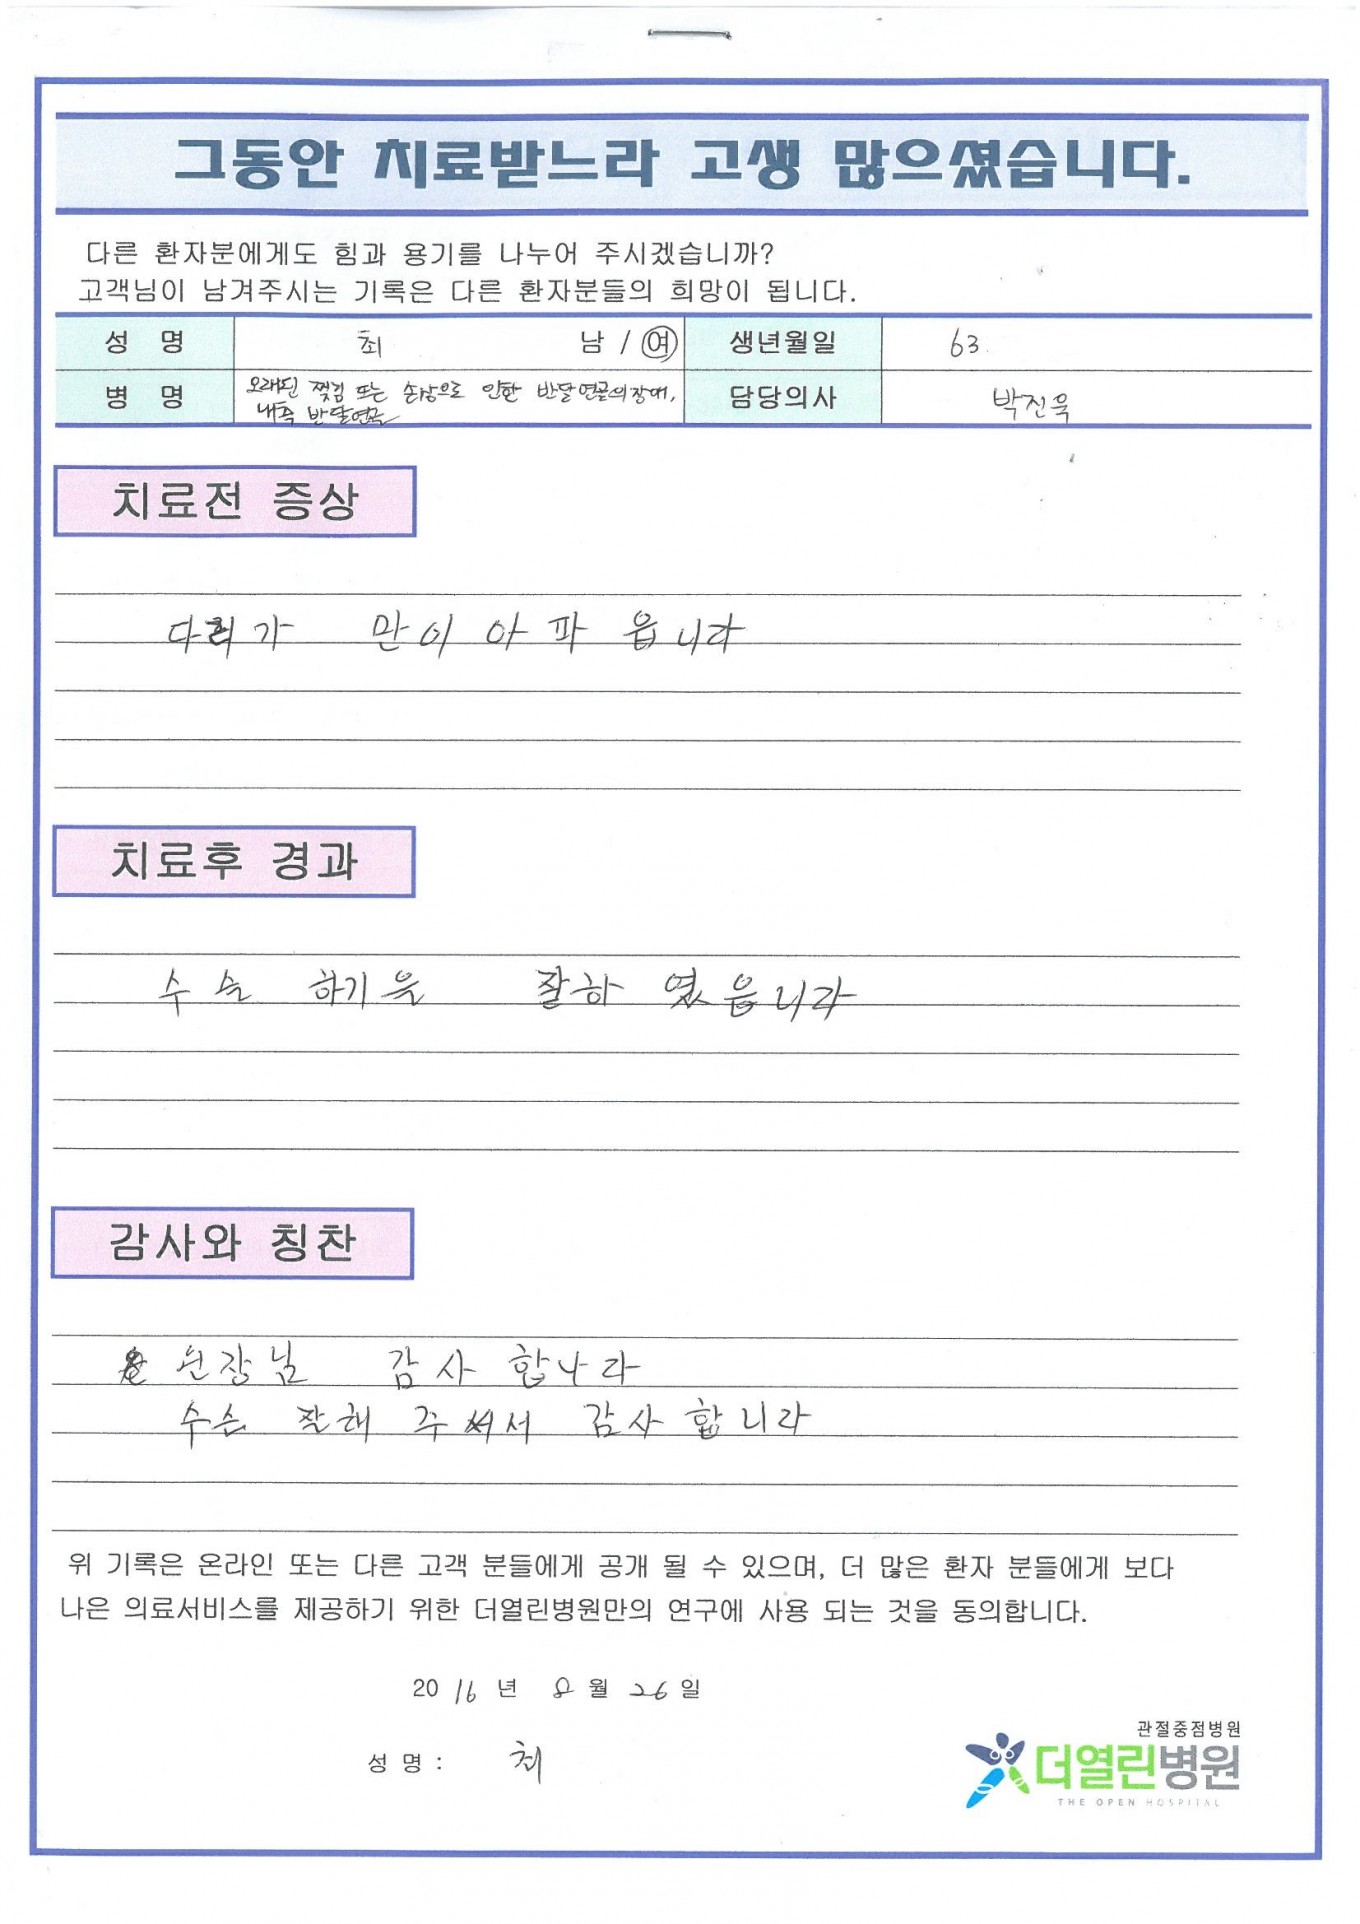 그동안 치료받느라 고생 많으셨습니다.
다른 환자분에게도 힘과 용기를 나누어 주시겠습니까?
고객님이 남겨주시는 기록은 다른 환자분들의 희망이 됩니다.
성 명 최 남 / 여 생년월일 63.
병 명 오래된 찢김 또는 손상으로 인한 반달연골의장애, 담당의사 박진욱
내측 반달연골
치료전 증상
다리가 만이 아파 읍니다
치료후 경과
수술 하기을 잘하 였읍니다
감사와 칭찬
원장님 감사 합니다
수술 잘해 주셔서 감사 합니다
위 기록은 온라인 또는 다른 고객 분들에게 공개 될 수 있으며, 더 많은 환자 분들에게 보다
나은 의료서비스를 제공하기 위한 더열린병원만의 연구에 사용 되는 것을 동의합니다.
2016 년 8 월 26 일
성 명 : 최
관절중점병원
더열린병원
THE OPEN HOSPITAL